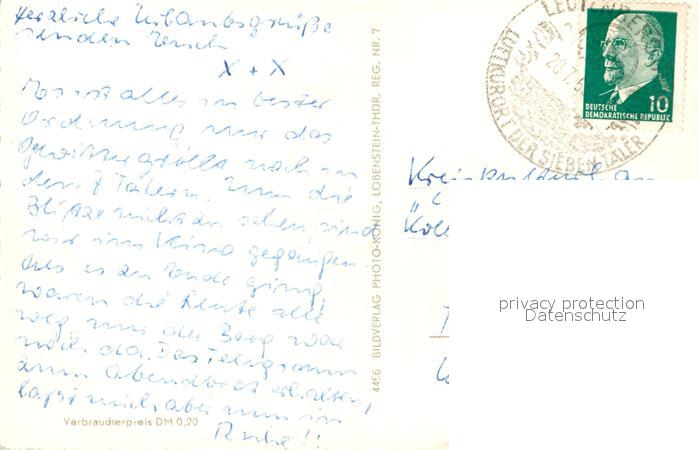 Herzliche Urlaubsgrüße
senden Euch
X + X
Es ist alles in bester
Ordnung nur das
Gewitter grollt noch in
den 7 Tälern. Um die
Blitze nicht zu sehen sind
wir ins Kino gegangen.
Als es zu Ende ging,
waren die Leute alle
weg nur der Berg war
noch da. Das Telegramm
zum Abendbrot erhalten,
laßt mich aber nun in
Ruhe!!
Verbraucherpreis DM 0,20
4456 BILDVERLAG PHOTO-KÖNIG, LOBENSTEIN-THÜR. REG. NR. 7
LEUTENBERG
20.7.
LUFTKURORT DER SIEBEN TÄLER
DEUTSCHE
DEMOKRATISCHE REPUBLIK
10
privacy protection
Datenschutz